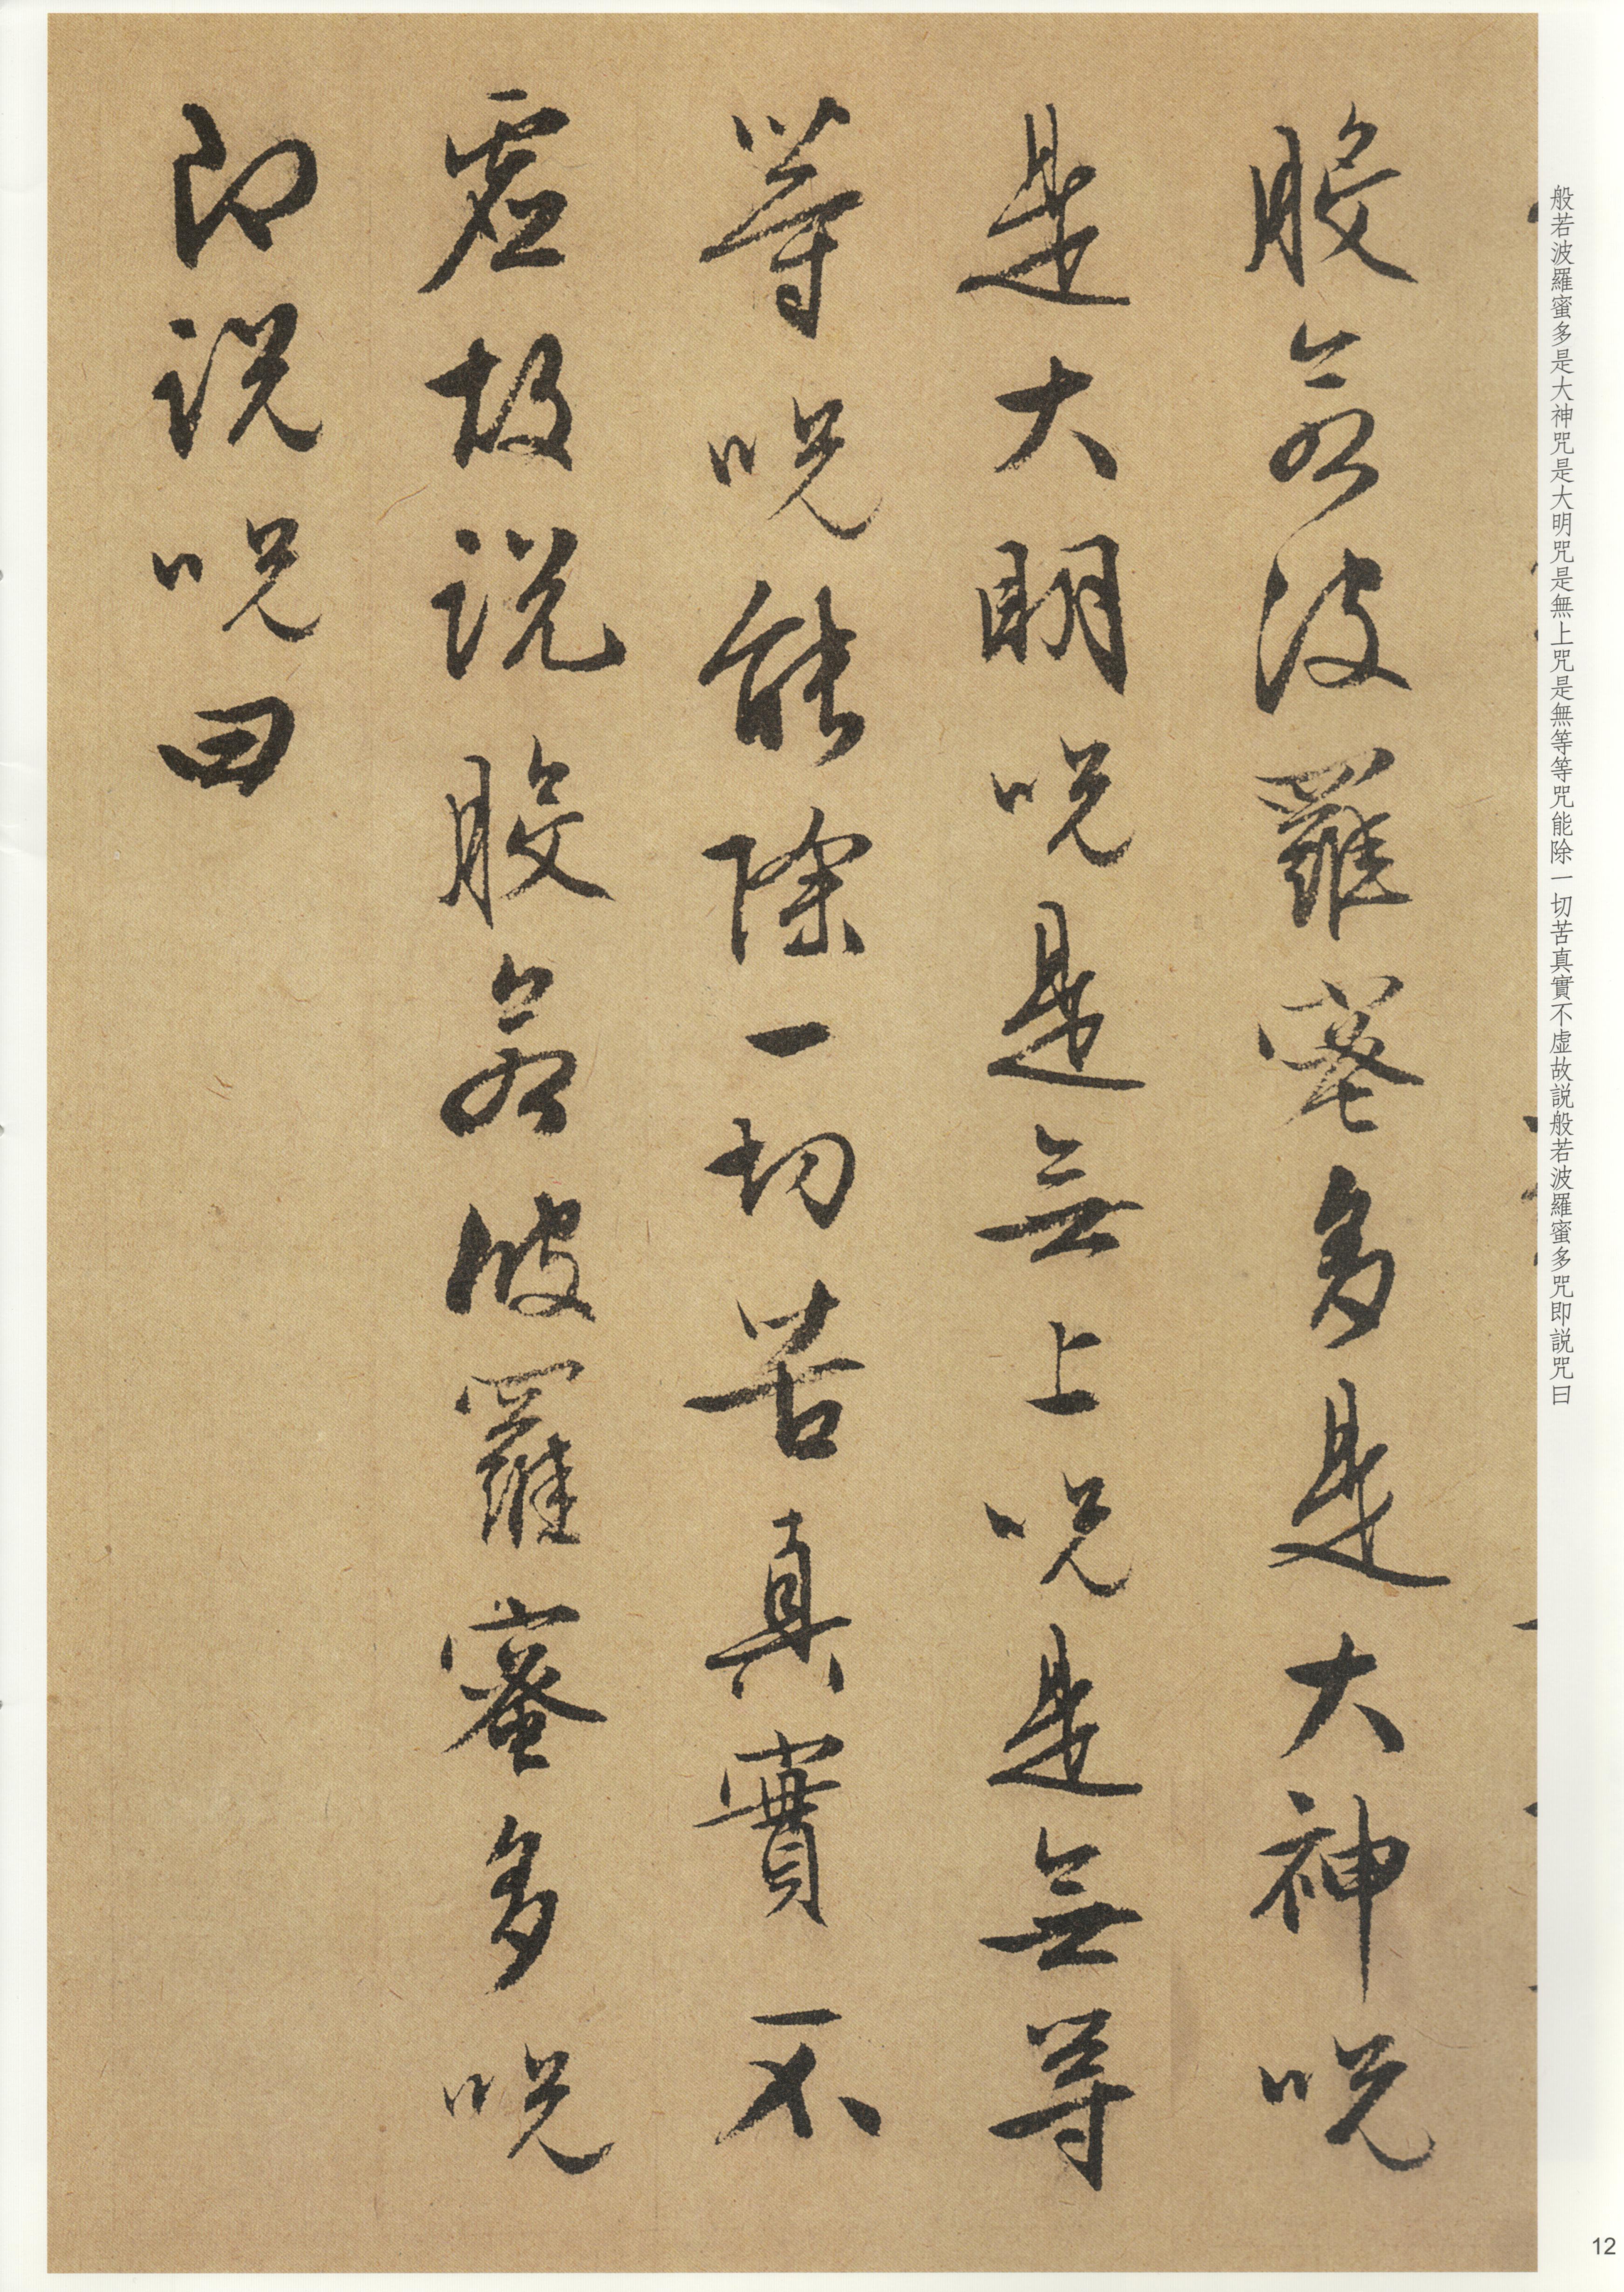 般若波羅蜜多是大神咒是大明咒是無上咒是無等等咒能除一切苦真實不虛故説般若波羅蜜多咒即説咒曰
般若波羅蜜多是大神呪
是大明呪是無上呪是無等
等呪能除一切苦真實不
虛故説般若波羅蜜多呪
即説呪曰
12